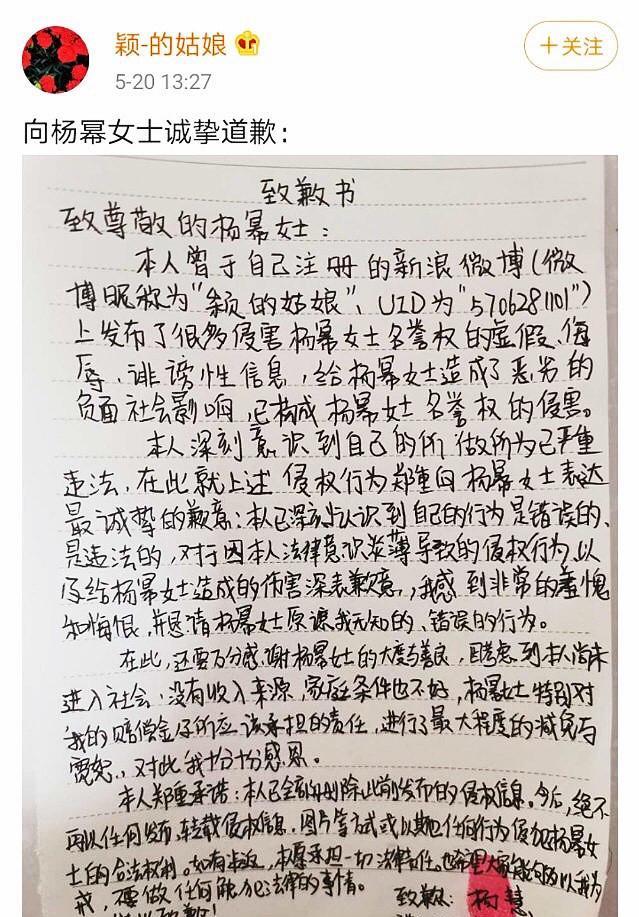 颖-的姑娘
+关注
5-20 13:27
向杨幂女士诚挚道歉：
致歉书
致尊敬的杨幂女士：
本人曾于自己注册的新浪微博(微
博昵称为"颖的姑娘"、UID为"5706281101")
上发布了很多侵害杨幂女士名誉权的虚假、侮
辱、诽谤性信息，给杨幂女士造成了恶劣的
负面社会影响，已构成杨幂女士名誉权的侵害。
本人深刻意识到自己的所做所为已严重
违法，在此就上述侵权行为郑重向杨幂女士表达
最诚挚的歉意：本人已深刻认识到自己的行为是错误的、
是违法的，对于因本人法律意识淡薄导致的侵权行为，以
及给杨幂女士造成的伤害深表歉意，我感到非常的羞愧
和悔恨，并恳请杨幂女士原谅我无知的、错误的行为。
在此，还要万分感谢杨幂女士的大度与善良，因考虑到本人尚未
进入社会，没有收入来源，家庭条件也不好，杨幂女士特别对
我的赔偿金及所应该承担的责任，进行了最大程度的减免与
宽恕，对此我十分十分感恩。
本人郑重承诺：本人已全部删除此前发布的侵权信息。今后，绝不
再以任何发布、转载侵权信息、图片等方式或以其他任何行为侵犯杨幂女
士的合法权利。如有违反，本人愿承担一切法律责任。也希望大家能够以我为
戒，不要做任何触犯法律的事情。
致歉人：柯慧